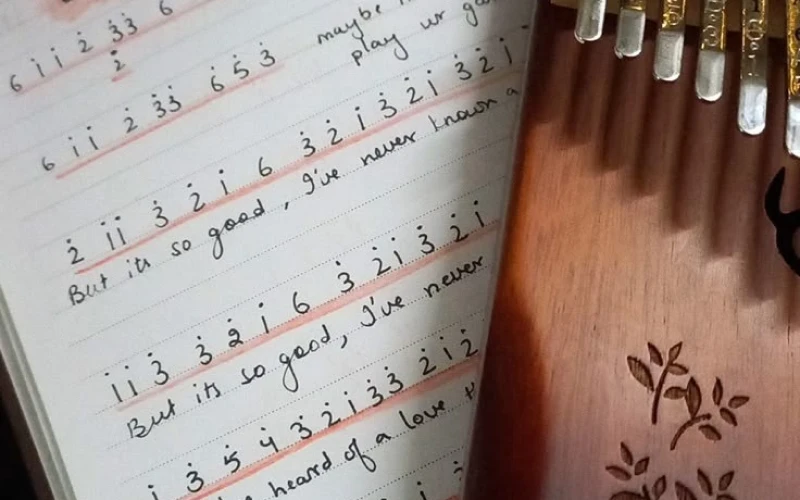 maybe
6 i i 2̇ 3̇3̇ 6
play ur
2̇
6 i i 2̇ 3̇3̇ 6̇ 5̇ 3̇
2̇ i i 3̇ 2̇ i 6 3̇ 2̇ i 3̇ 2̇ i 3̇ 2̇ i
But its so good, I've never known a
i i 3̇ 3̇ 2̇ i 6 3̇ 2̇ i 3̇ 2̇ i
But its so good, I've never
i 3̇ 5̇ 4̇ 3̇ 2̇ i 3̇3̇ 2̇ i 2̇
heard of a love